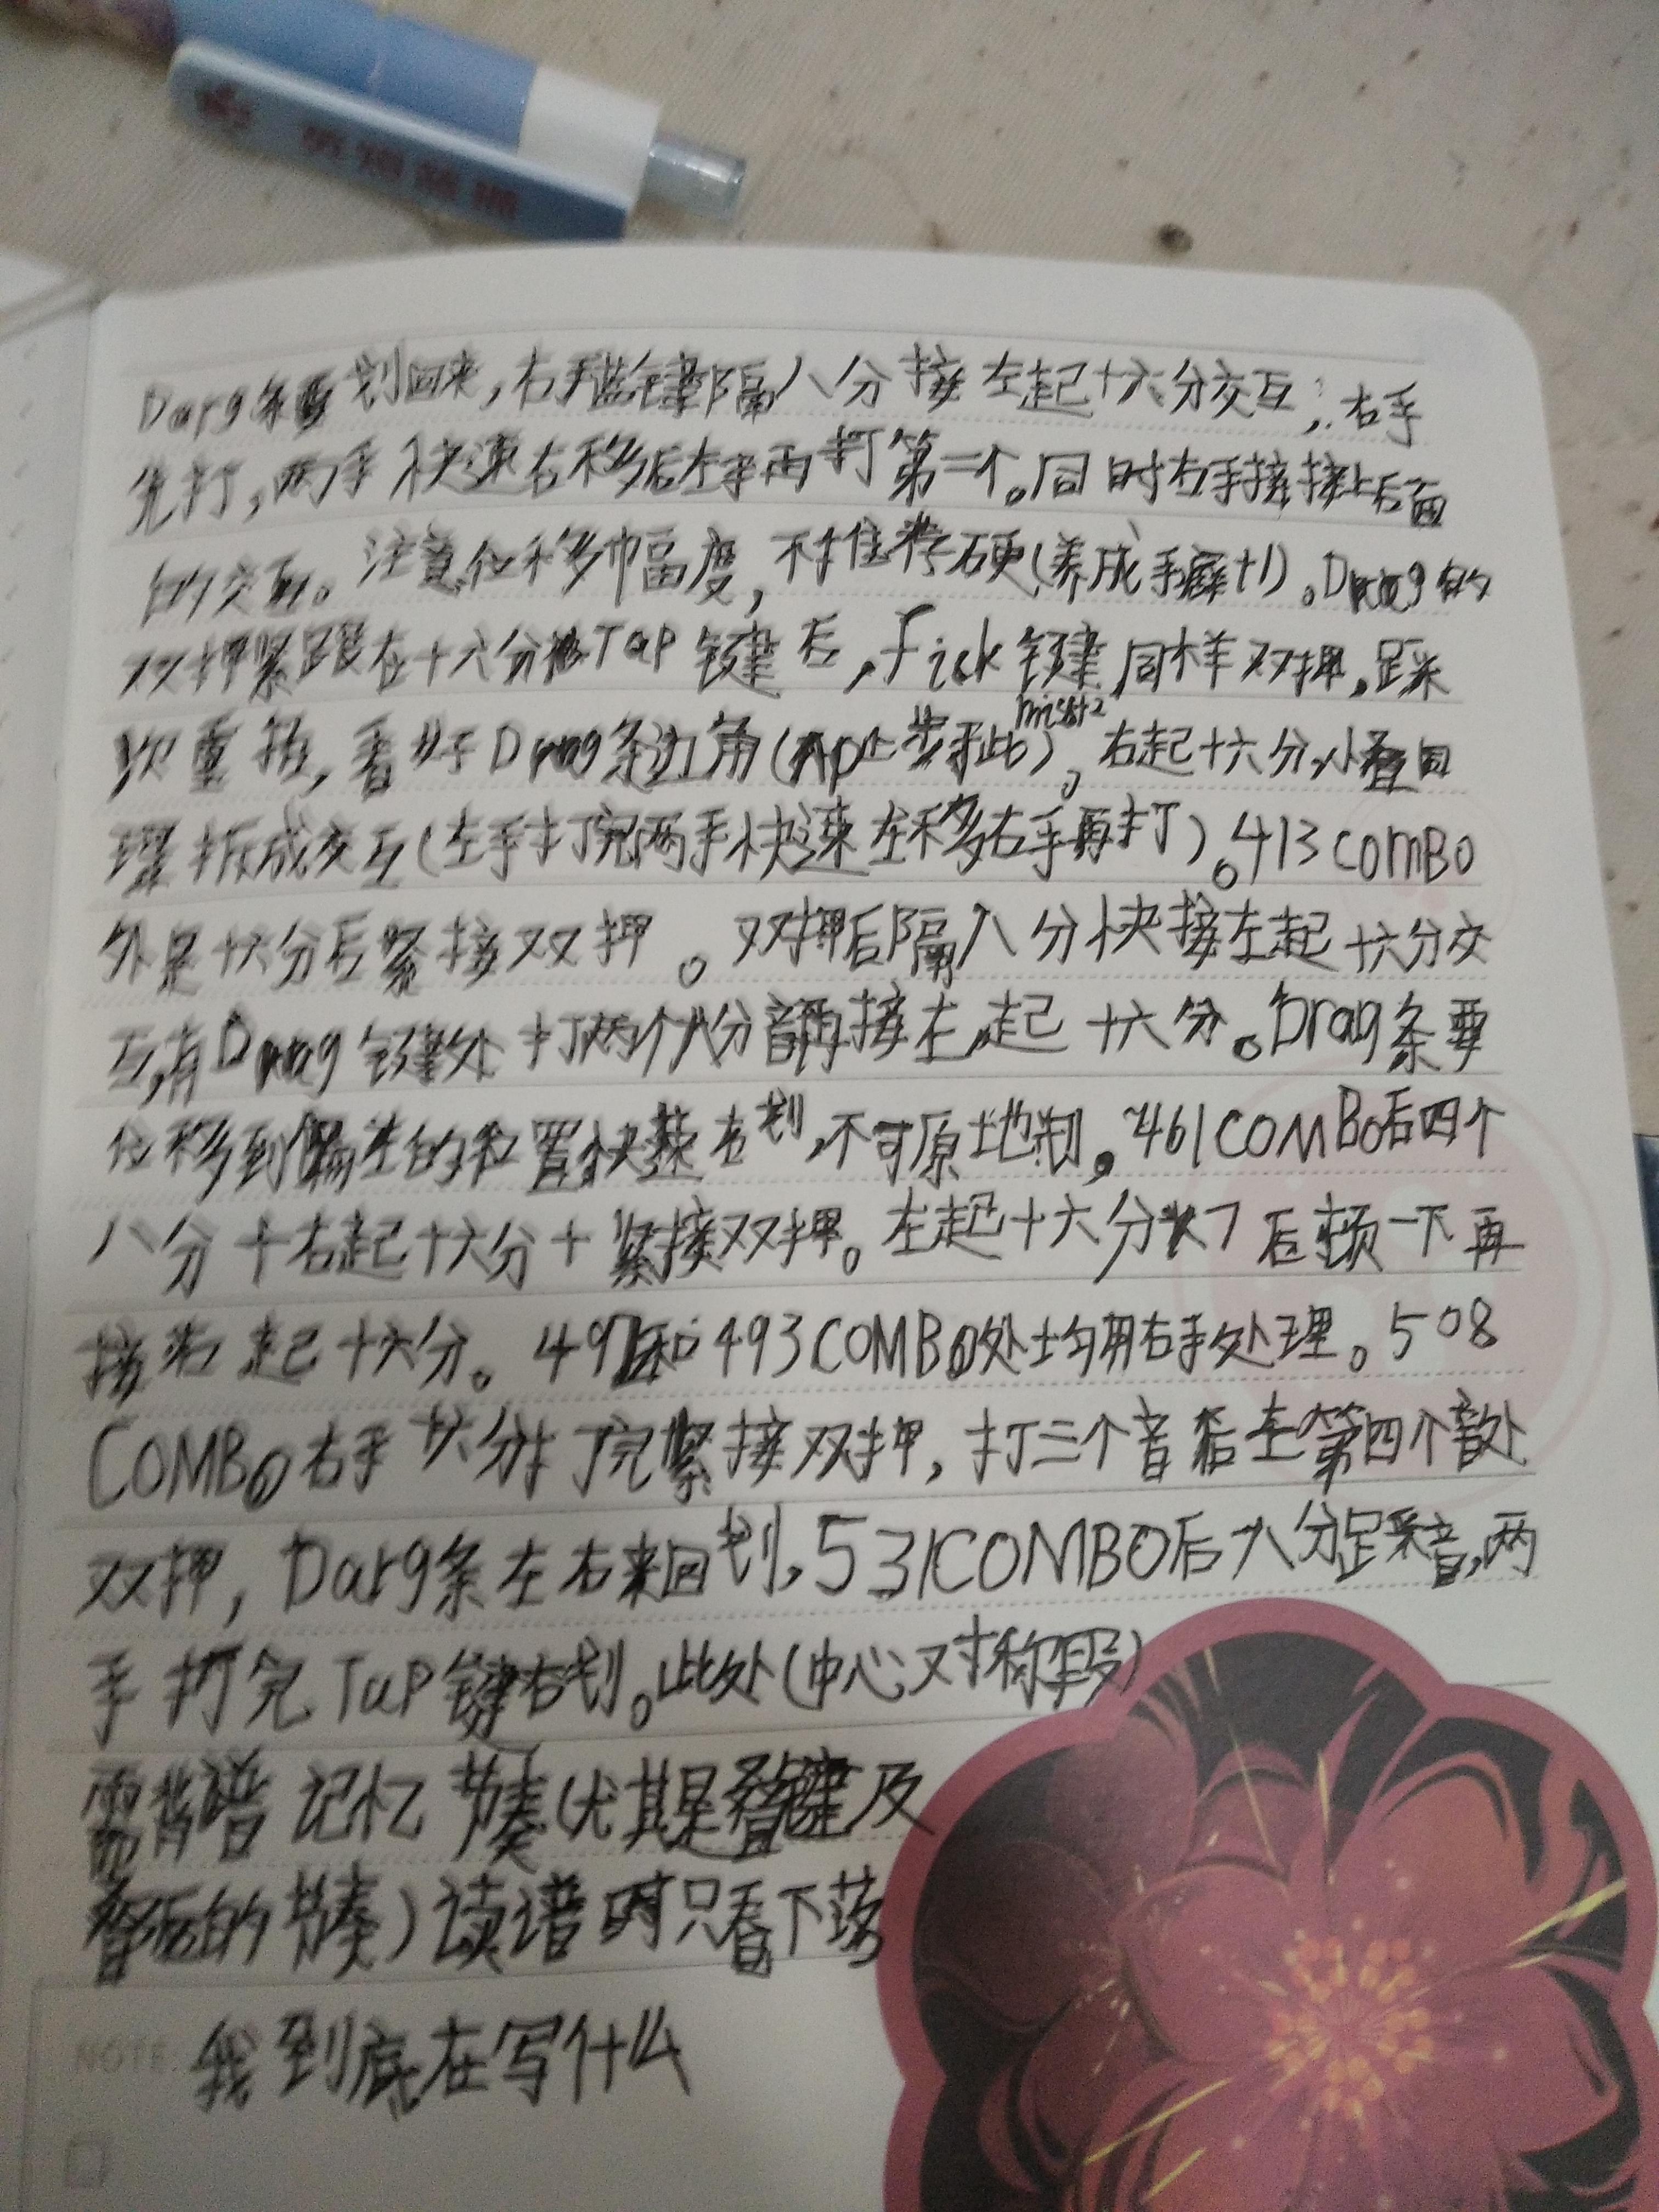 Darg条要划回来,右手蓝键隔八分接左起十六分交互;右手
先打,两手快速右移后左手再打第一个。同时右手接接上后面
的交互。注意位移多巾幅度,不推荐硬(养成手癖+1)。Drag的
双押紧跟在十六分Tap键后,Fick键同样双押,踩
重拍,看好Drag条边角(Ap止步于此),右起十六分,小叠
miss+2
理拆成交互(左手打完两手快速左移右手再打)。413COMBO
处是十六分后紧接双押。双押后隔八分快接左起十六分交
互,有Drag键处打两个八分音再接左起十六分。Drag条要
位移到偏左的位置快速右划,不可原地划。461COMBO后四个
八分+右起十六分+紧接双押。左起十六分x7后顿一下再
接右起十六分。和493COMBO处均用右手处理。508
COMBO右手十六分打完紧接双押,打三个音后在第四个音处
双押,Darg条左右来回划,531COMBO后八分踩音,两
手打完Tap键右划。此处(中心对称段)
需背谱记忆节奏(尤其是叠键及
叠后的节奏)读谱时只看下落
NOTE 我到底在写什么